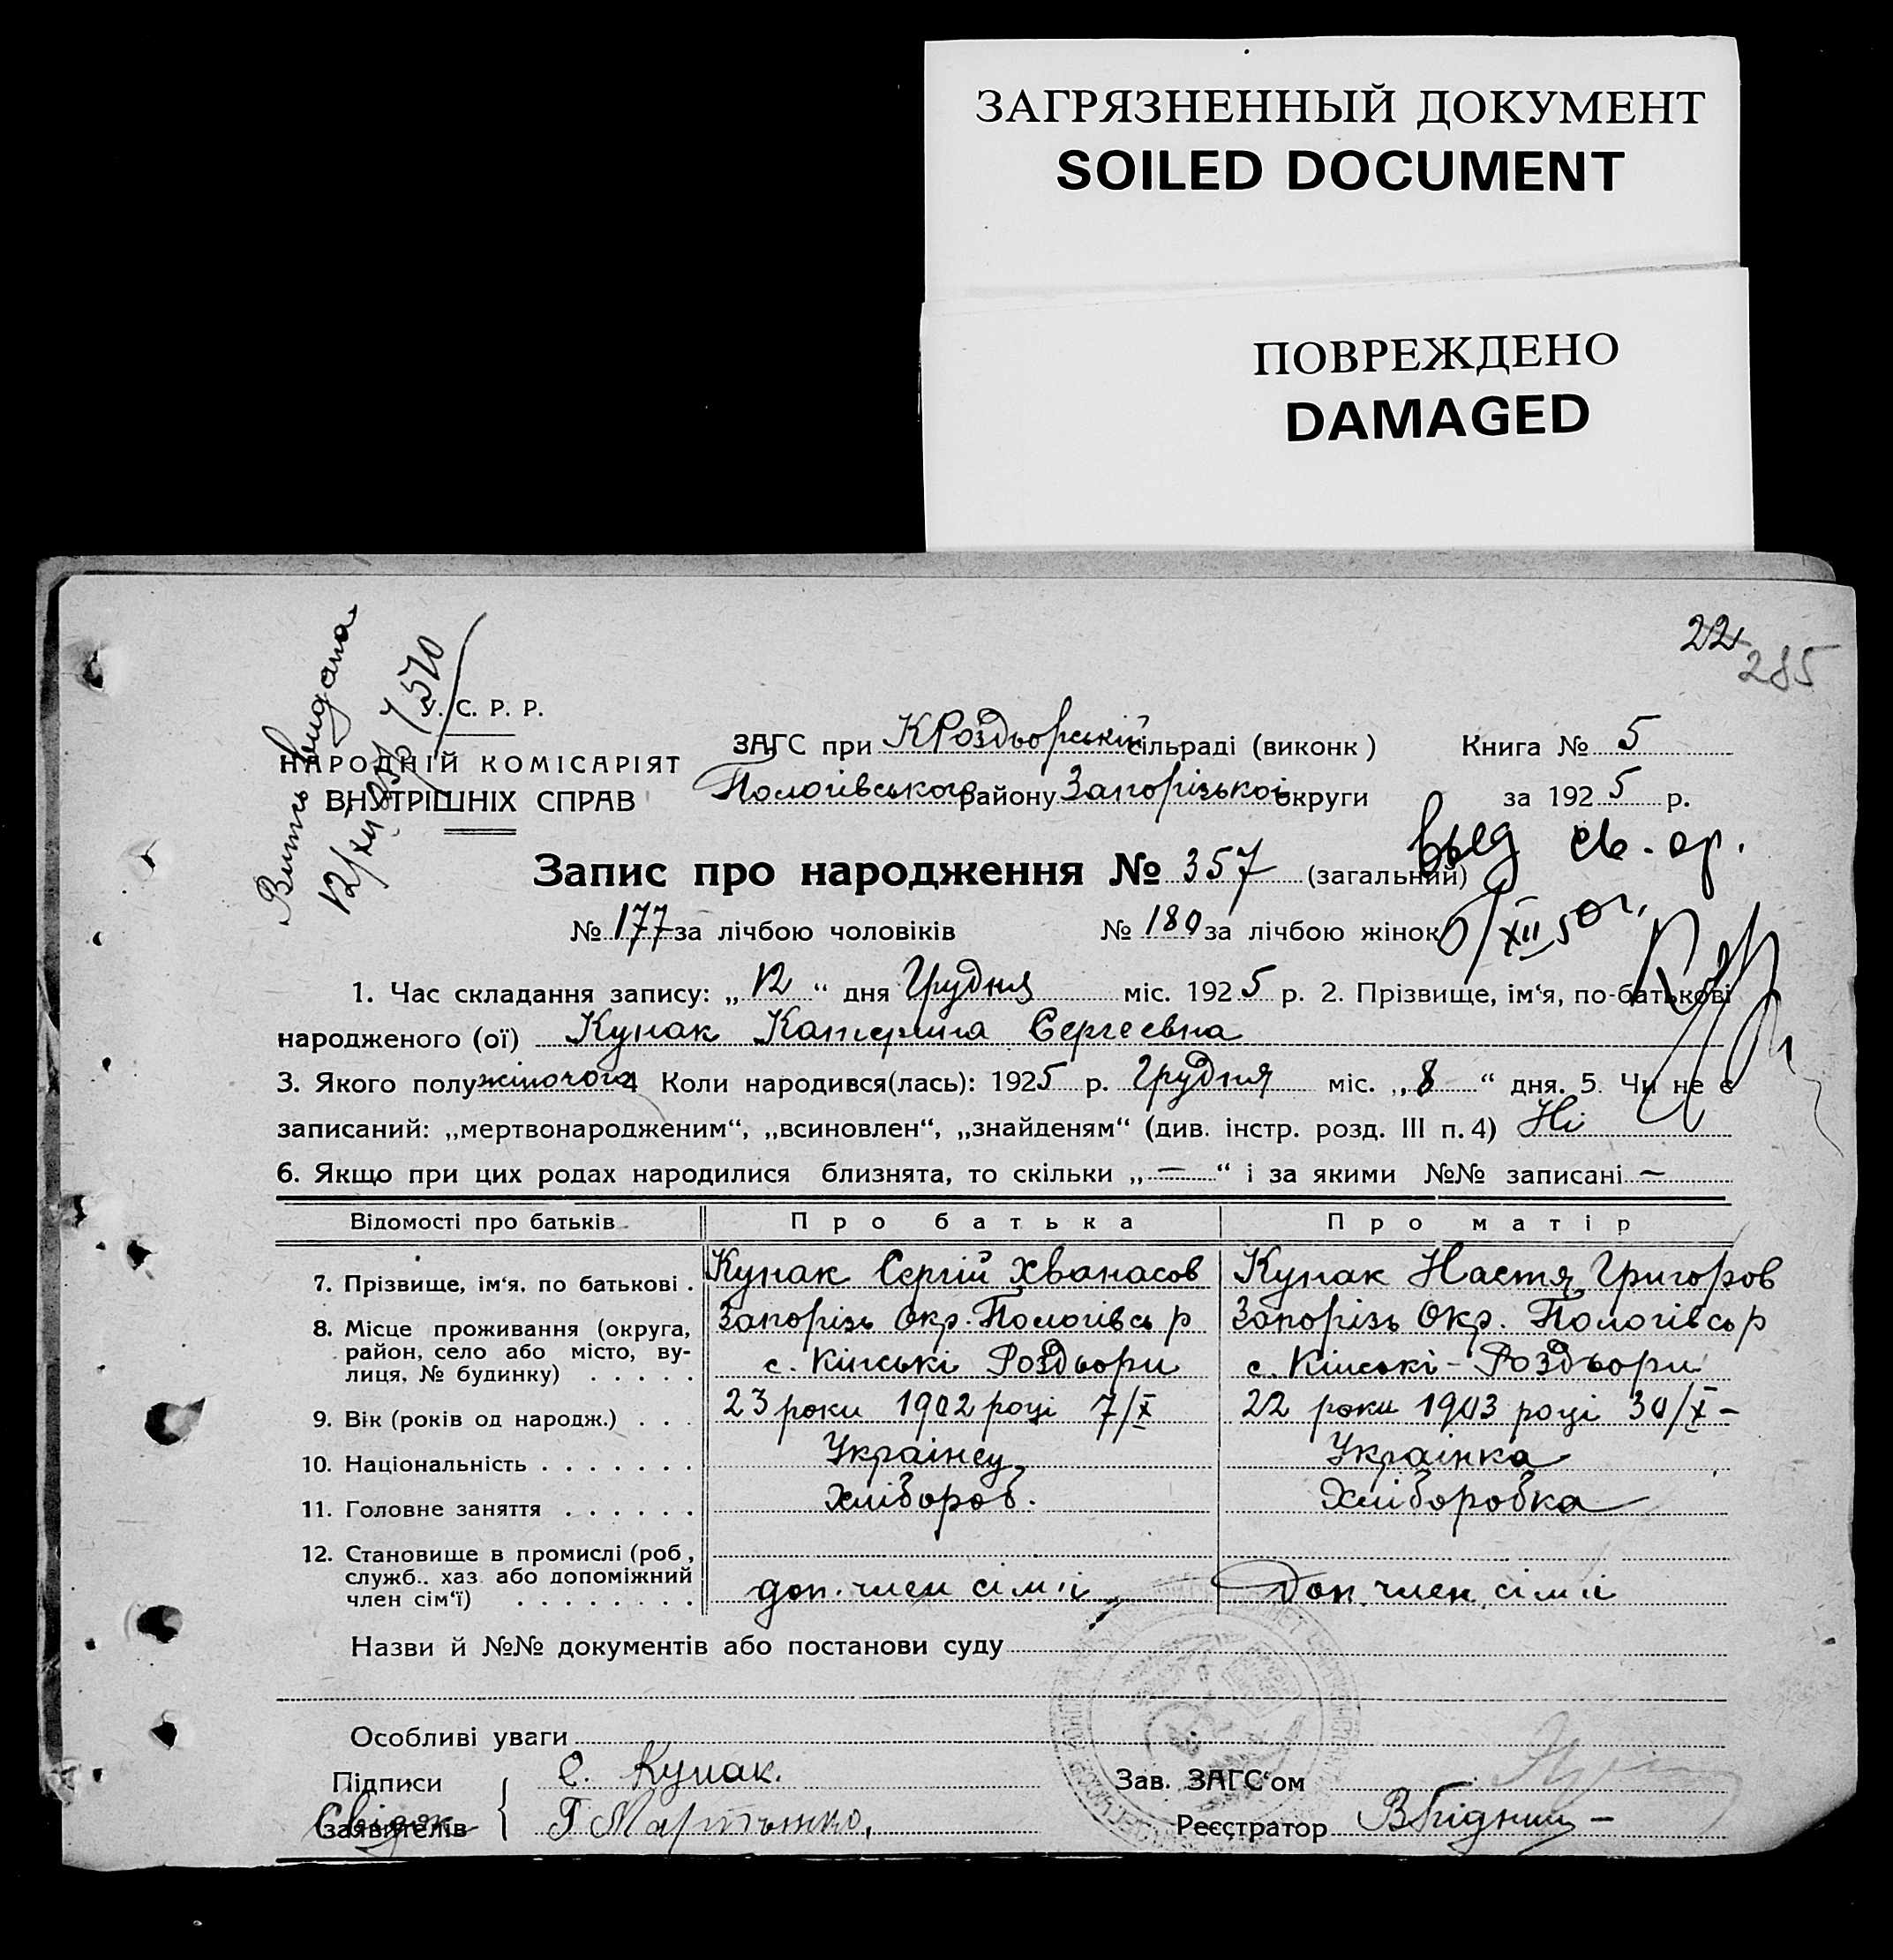 ЗАГРЯЗНЕННЫЙ ДОКУМЕНТ
SOILED DOCUMENT
ПОВРЕЖДЕНО
DAMAGED
22
285
Витяг видана
12/XII
У. С. Р. Р.
НАРОДНІЙ КОМІСАРІЯТ
ВНУТРІШНІХ СПРАВ
ЗАГС при КРоздьорській сільраді (виконк)
Книга № 5
Пологівського району Запорізької округи
за 1925 р.
Выд св. ор.
Запис про народження № 357 (загальний)
№ 177 за лічбою чоловіків № 180 за лічбою жінок
/XII 50 г.
1. Час складання запису: „12“ дня Грудня міс. 1925 р. 2. Прізвище, ім‘я, по-батькові
народженого (ої) Купак Катерина Сергеевна
3. Якого полу жіночого 4 Коли народився(лась): 1925 р. Грудня міс. „8“ дня. 5. Чи не є
записаний: „мертвонародженим“, „всиновлен“, „знайденям“ (див. інстр. розд. III п. 4) Ні
6. Якщо при цих родах народилися близнята, то скільки „—“ і за якими №№ записані —
Відомості про батьків Про батька Про матір
7. Прізвище, ім‘я, по батькові . Купак Сергій Хванасов Купак Настя Григоров
8. Місце проживання (округа, Запорізь Окр. Пологівсь р Запорізь Окр. Пологівсь р
район, село або місто, ву-
лиця, № будинку) . . . . . с. Кінські Роздьори с. Кінські-Роздьори
9. Вік (років од народж.) . . . 23 роки 1902 році 7/X 22 роки 1903 році 30/X –
10. Національність . . . . . . . Українец Українка
11. Головне заняття . . . . . . Хлібороб. Хліборобка
12. Становище в промислі (роб.,
служб.. хаз. або допоміжний
член сім‘ї) . . . . . . . . доп. член сім'ї доп. член сім'ї
Назви й №№ документів або постанови суду
Особливі уваги
Підписи С. Купак.
Зав. ЗАГС‘ом
Свідок
заявителів
Реєстратор